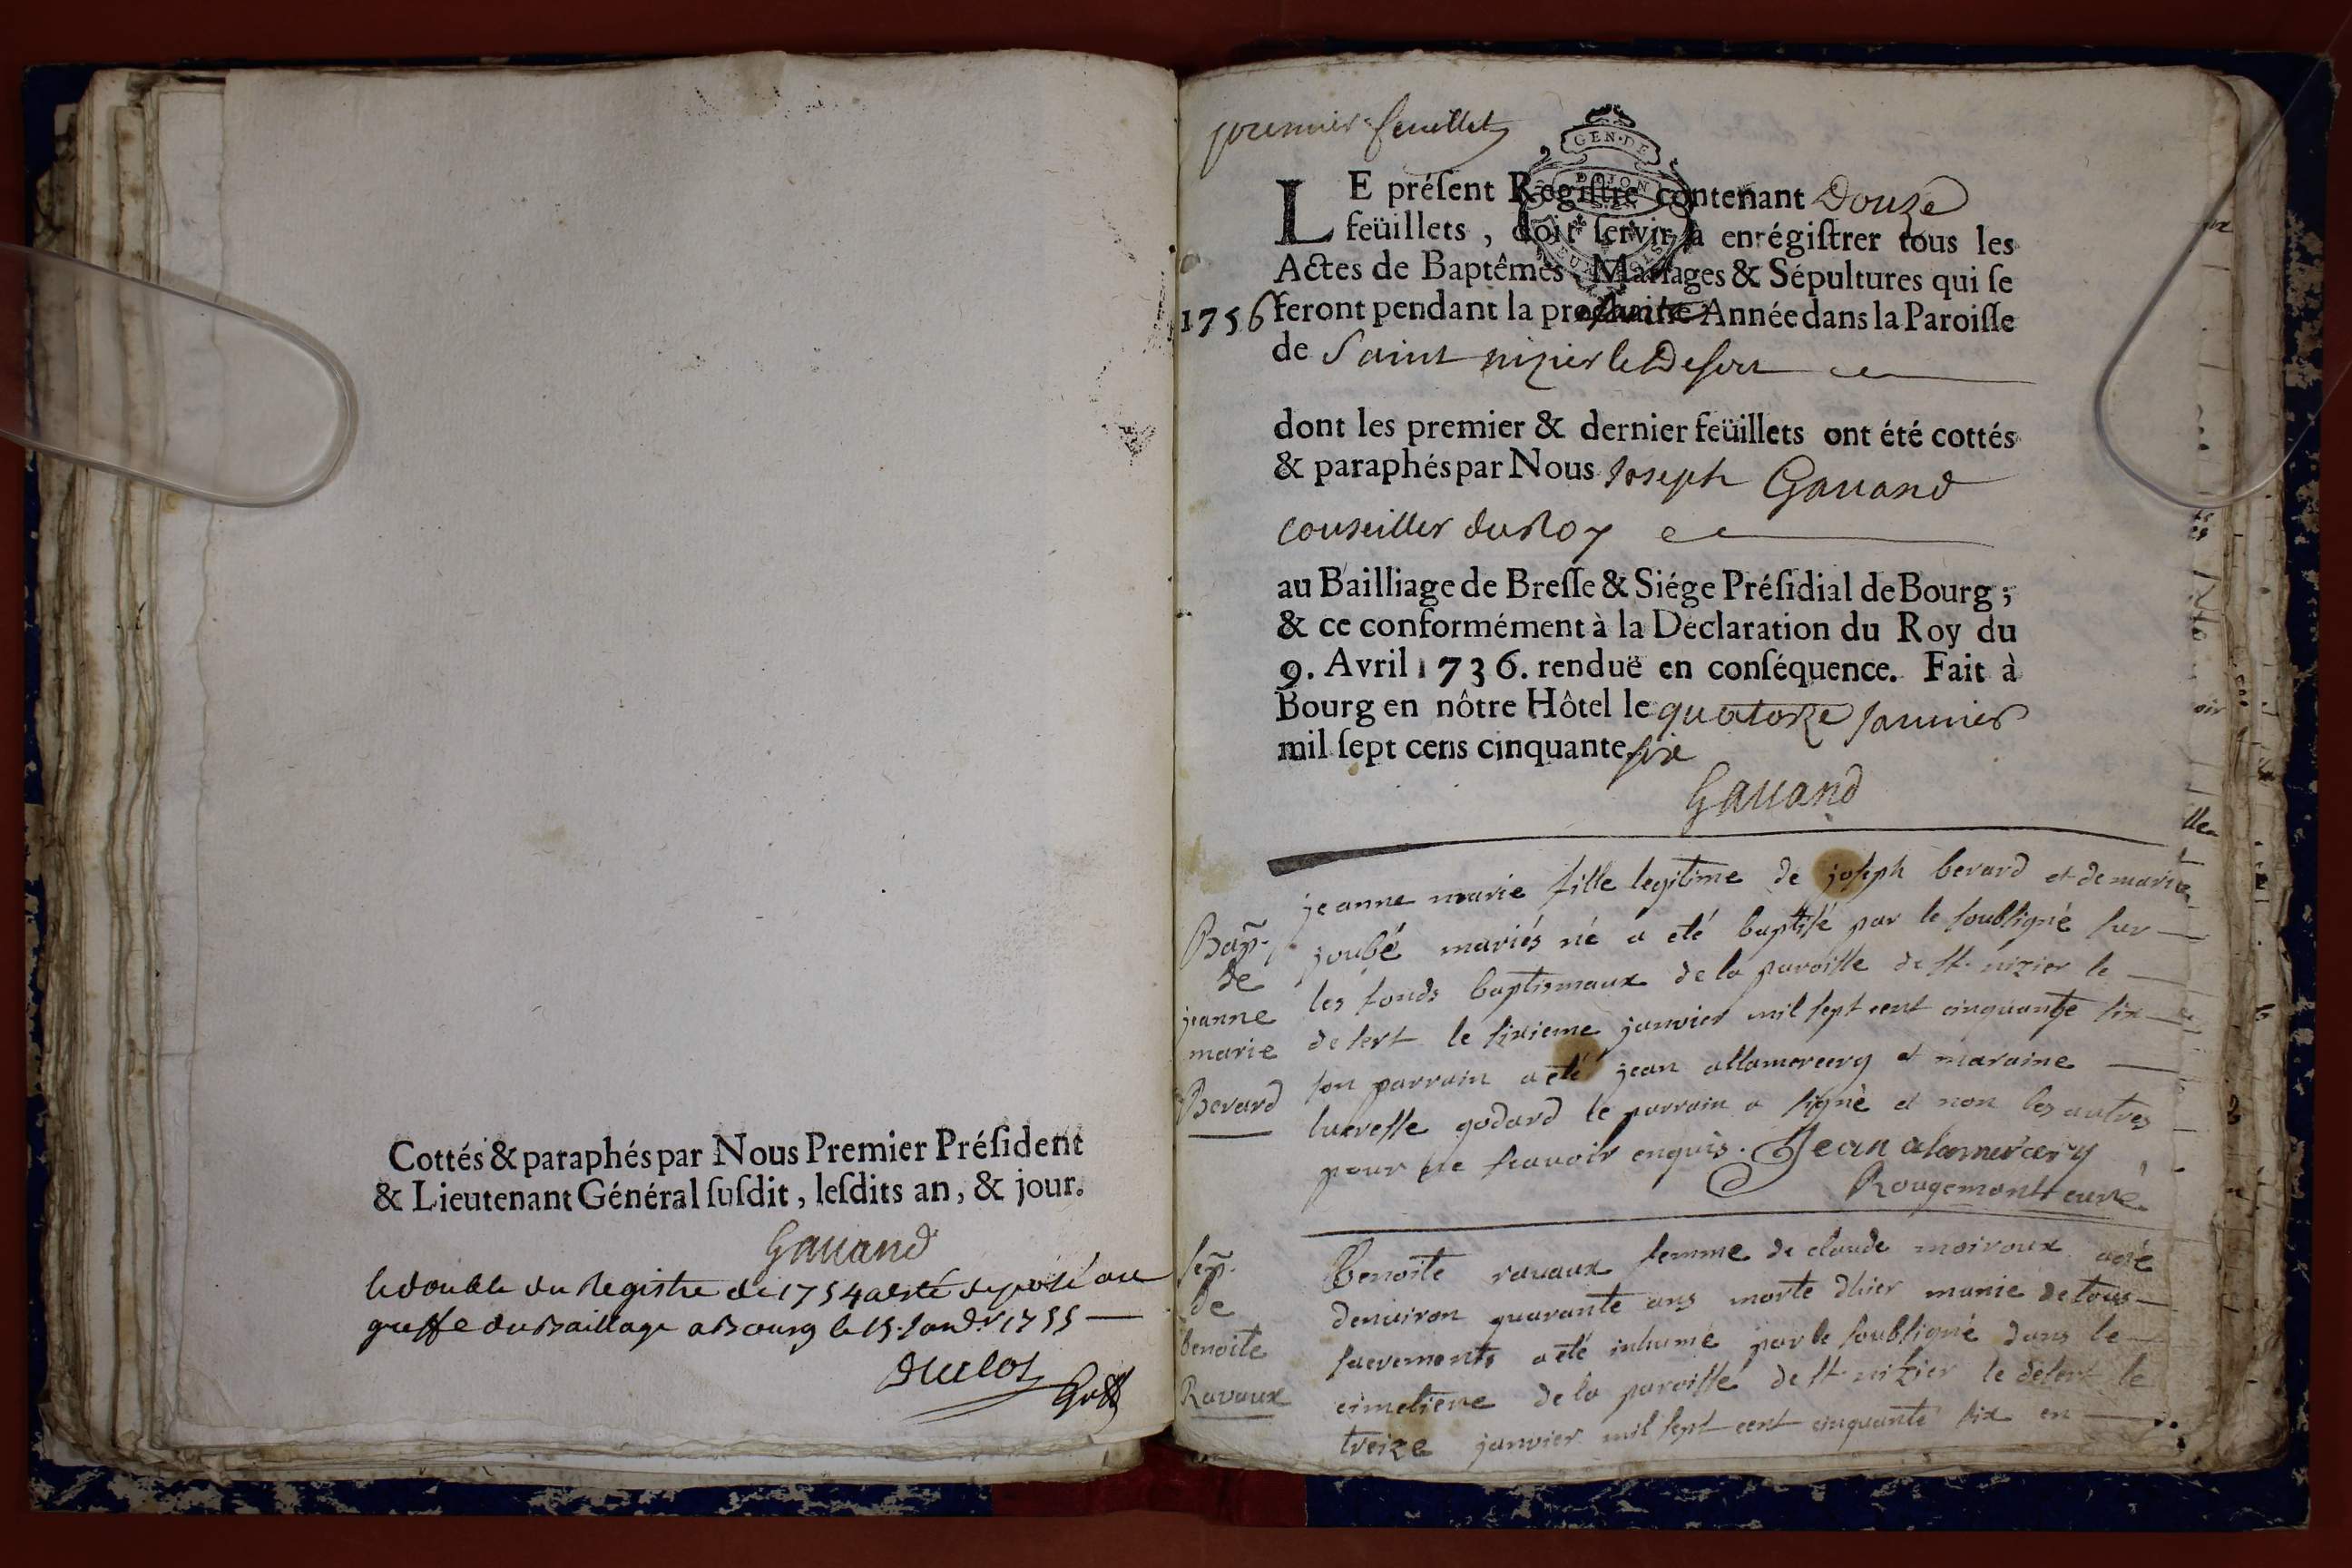 Cottés & paraphés par Nous Premier Préſident
& Lieutenant Général ſuſdit, leſdits an, & jour.
Gauand
le double du Registre de 1754 a esté deposé au
greffe du Baillage a Bourg le 15. Janv.r 1755
Duclos
Greff
premier feuillet
GEN. DE
DIJON
LE préſent Regiſtre contenant Douze
feüillets, doit ſervir à enrégiſtrer tous les
Actes de Baptêmes Mariages & Sépultures qui ſe
1756 feront pendant la Année dans la Paroiſſe
de Saint nizier le Desert
dont les premier & dernier feüillets ont été cottés
& paraphés par Nous Joseph Gauand
conseiller du Roy
au Bailliage de Breſſe & Siége Préſidial de Bourg ;
& ce conformément à la Déclaration du Roy du
9. Avril 1736. renduë en conſéquence. Fait à
Bourg en nôtre Hôtel le quatorze Januier
mil ſept cens cinquante six
Gauand
Bap.
de
jeanne
marie
Berard
jeanne marie fille legitime de joseph berard et de marie
joubé mariés né a eté baptisé par le soussigné sur
les fonds baptismaux de la paroisse de st. nizier le
desert le sixieme janvier mil sept cent cinquante six
son parrain a eté jean allamercery et maraine
lucresse godard le parrain a signé et non les autres
pour ne scavoir enquis. Jean alamercery
Rougemont curé
sep.
de
benoite
Ravaux
Benoite rauaux femme de claude moiroux agé
denuiron quarante ans morte dhier munie de tous
sacrements a eté inhumé par le soussigné dans le
cimetiere de la paroisse de st. nizier le desert le
treize janvier mil sept cent cinquante six en